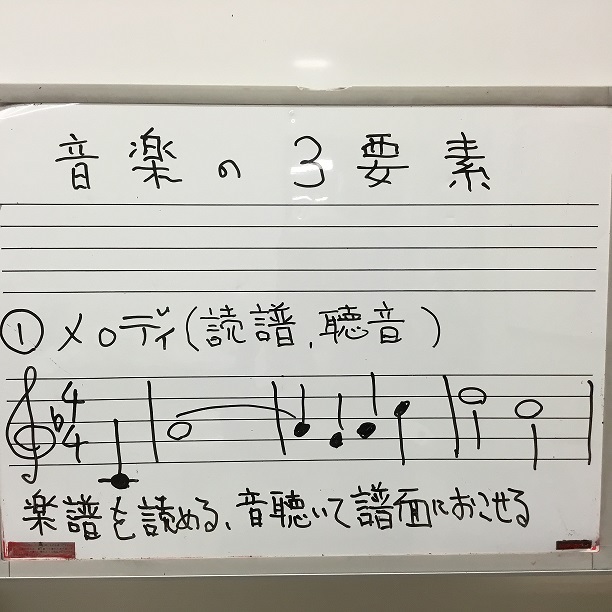 音楽の3要素
①メロディ(読譜,聴音)
4
4
楽譜を読める、音聴いて譜面におこせる